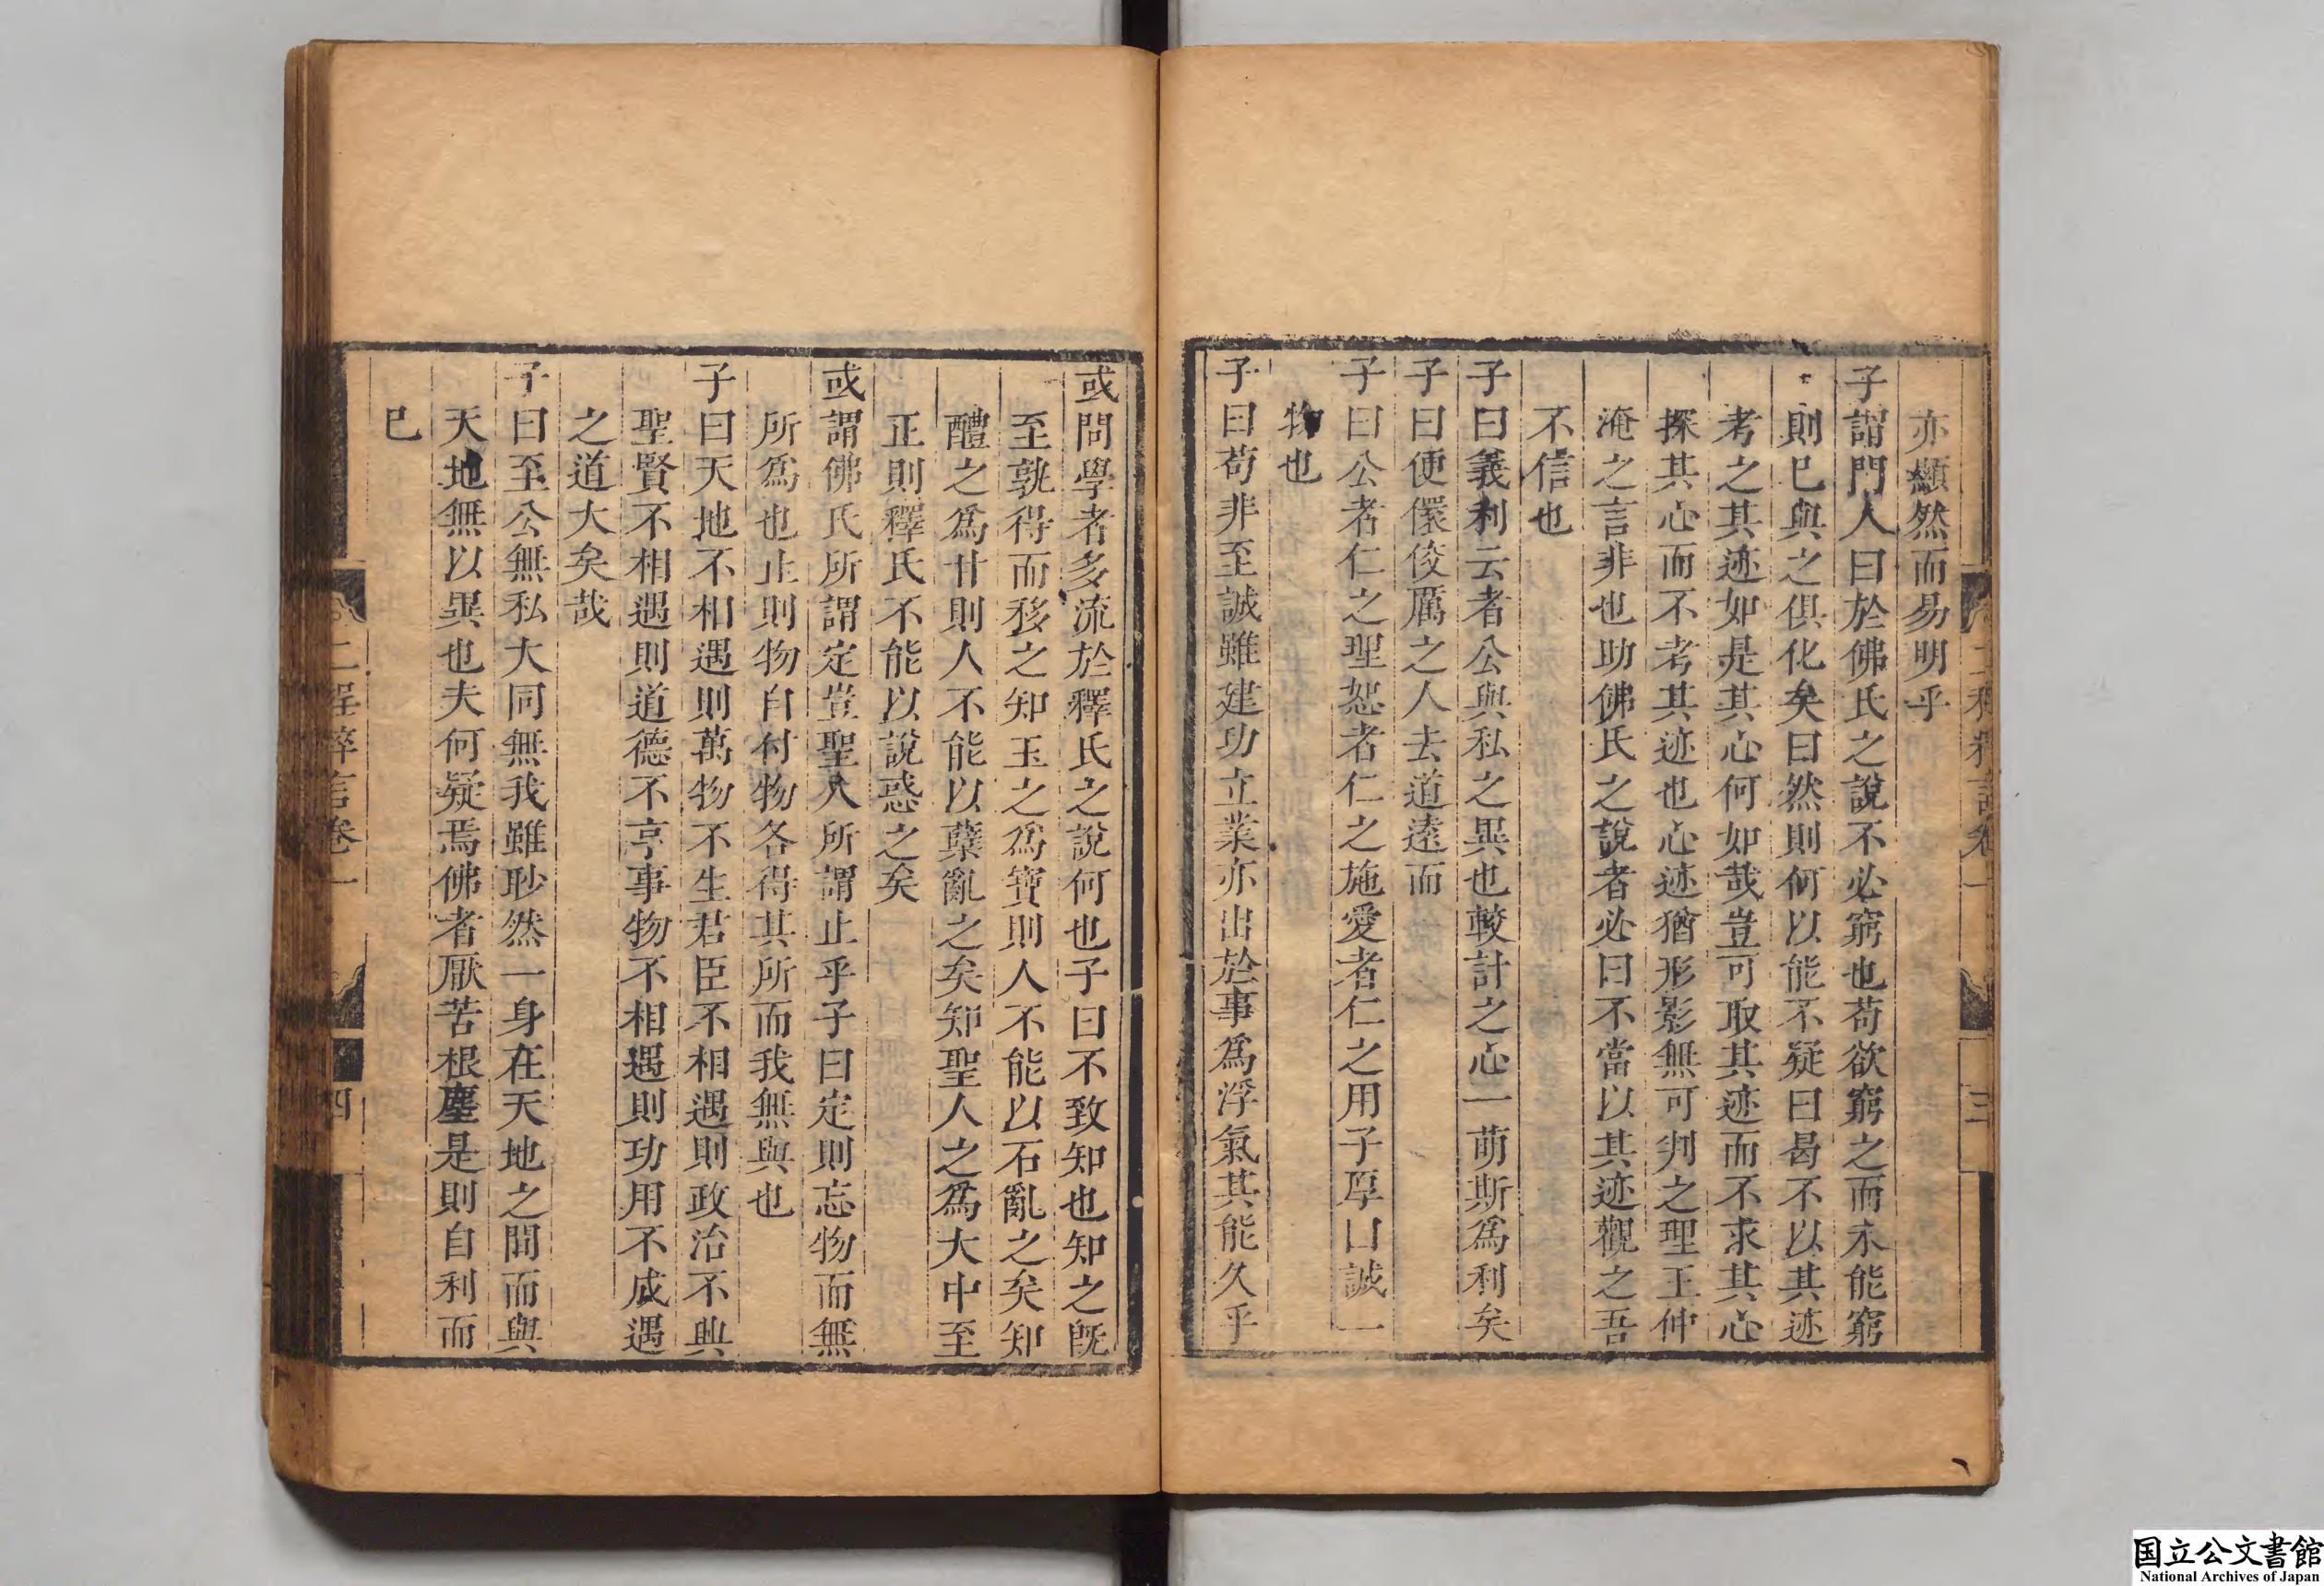 亦顯然而易明乎
子謂門人曰於佛氏之說不必窮也苟欲窮之而未能窮
則已與之俱化矣曰然則何以能不疑曰曷不以其迹
考之其迹如是其心何如哉豈可取其迹而不求其心
探其心而不考其迹也心迹猶形影無可判之理王仲
淹之言非也助佛氏之說者必曰不當以其迹觀之吾
不信也
子曰義利云者公與私之異也較計之心一萌斯爲利矣
子曰便儇佼厲之人去道遠而
子曰公者仁之理恕者仁之施愛者仁之用子厚曰誠一
物也
子曰苟非至誠雖建功立業亦出於事爲浮氣其能久乎
二程粹言卷一
三
或問學者多流於釋氏之說何也子曰不致知也知之旣
至孰得而移之知玉之爲寶則人不能以石亂之矣知
醴之爲甘則人不能以糵亂之矣知聖人之爲大中至
正則釋氏不能以說惑之矣
或謂佛氏所謂定豈聖人所謂止乎子曰定則忘物而無
所爲也止則物自付物各得其所而我無與也
子曰天地不相遇則萬物不生君臣不相遇則政治不興
聖賢不相遇則道德不亨事物不相遇則功用不成遇
之道大矣哉
子曰至公無私大同無我雖眇然一身在天地之間而與
天地無以異也夫何疑焉佛者厭苦根塵是則自利而
已
二程粹言卷一
四
国立公文書館
National Archives of Japan